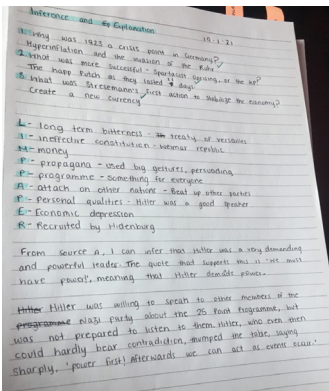 Inference and Explanation
19.1.21
1. Why was 1923 a crisis point in Germany?
Hyperinflation and the invasion of the Ruhr
2. What was more successful - Spartacist uprising, or the kp?
The Kapp Putsch as they lasted 4 days.
3. What was Stresemann's first action to stabilise the economy?
Create a new currency
L - long term bitterness - treaty of versailles
I - ineffective constitution - weimar republic
M - money
P - propagana - used big gestures, persuading
P - programme - something for everyone
A - attach on other nations - Beat up other parties
P - Personal qualities - Hitler was a good speaker
E - Economic depression
R - Recruited by Hidenburg
From source A, I can infer that Hitler was a very demanding
and powerful leader. The quote that supports this is 'we must
have power', meaning that Hitler demands power.
Hitler Hitler was willing to speak to other members of the
programme Nazi party about the 25 Point Programme, but
was not prepared to listen to them. Hitler, who even then
could hardly bear contradiction, thumped the table, saying
sharply, 'power first! Afterwards we can act as events occur.'